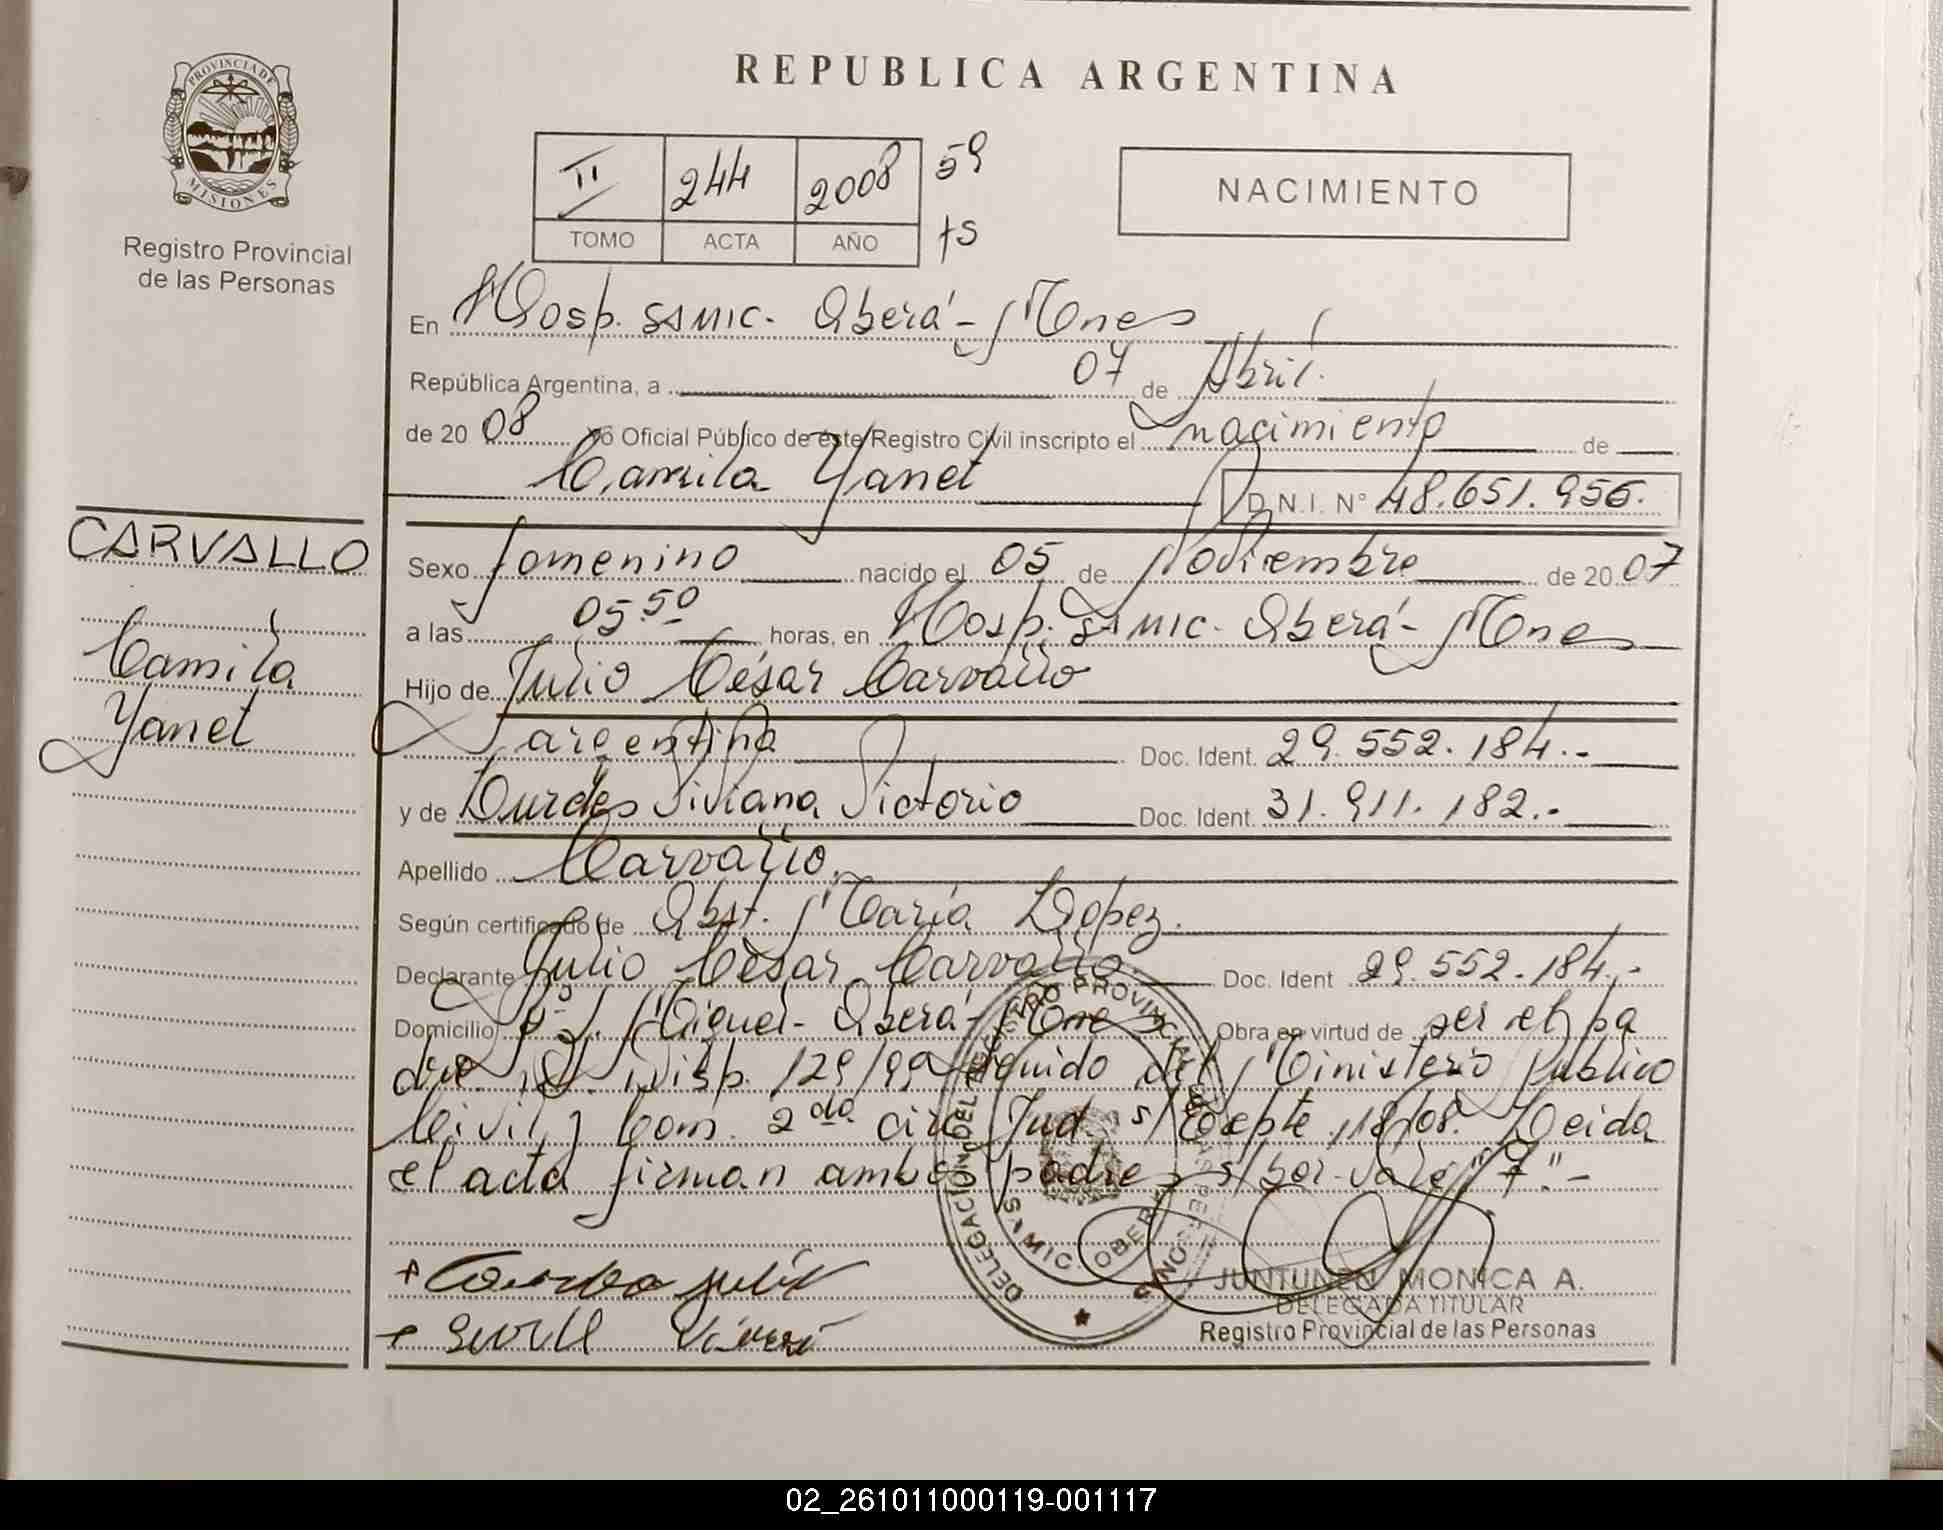 PROVINCIA DE
MISIONES
Registro Provincial
de las Personas
CARVALLO
Camila
Yanet
REPUBLICA ARGENTINA
II 244 2008 59
TOMO ACTA AÑO fs
NACIMIENTO
En Hosp. SAMIC. Oberá - Mnes
República Argentina, a 07 de Abril.
de 20 08 Yo Oficial Público de éste Registro Civil inscripto el nacimiento de
Camila Yanet D.N.I. N° 48.651.956.
Sexo femenino nacido el 05 de Noviembre de 20 07
a las 05.50 horas, en Hosp. SAMIC. Oberá - Mnes
Hijo de Julio César Carvallo
argentina Doc. Ident. 29.552.184.-
y de Lurdes Viviana Victorio Doc. Ident. 31.911.182.-
Apellido Carvallo.
Según certificado de Obst. María Lopez.
Declarante Julio César Carvallo. Doc. Ident 29.552.184.-
Domicilio Miguel - Oberá - Mnes Obra en virtud de ser el pa
dre. Disp. 129/99 Ministerio Público
Civil y Com. 2da Circ Jud. s/ Expte 118/08. Leida
el acta firman ambos padres s/bor. vale "7".-
DELEGACION DEL REGISTRO PROVINCIAL DE LAS PERSONAS
SAMIC OBERA
JUNTUNEN MONICA A.
DELEGADA TITULAR
Registro Provincial de las Personas
02_261011000119-001117